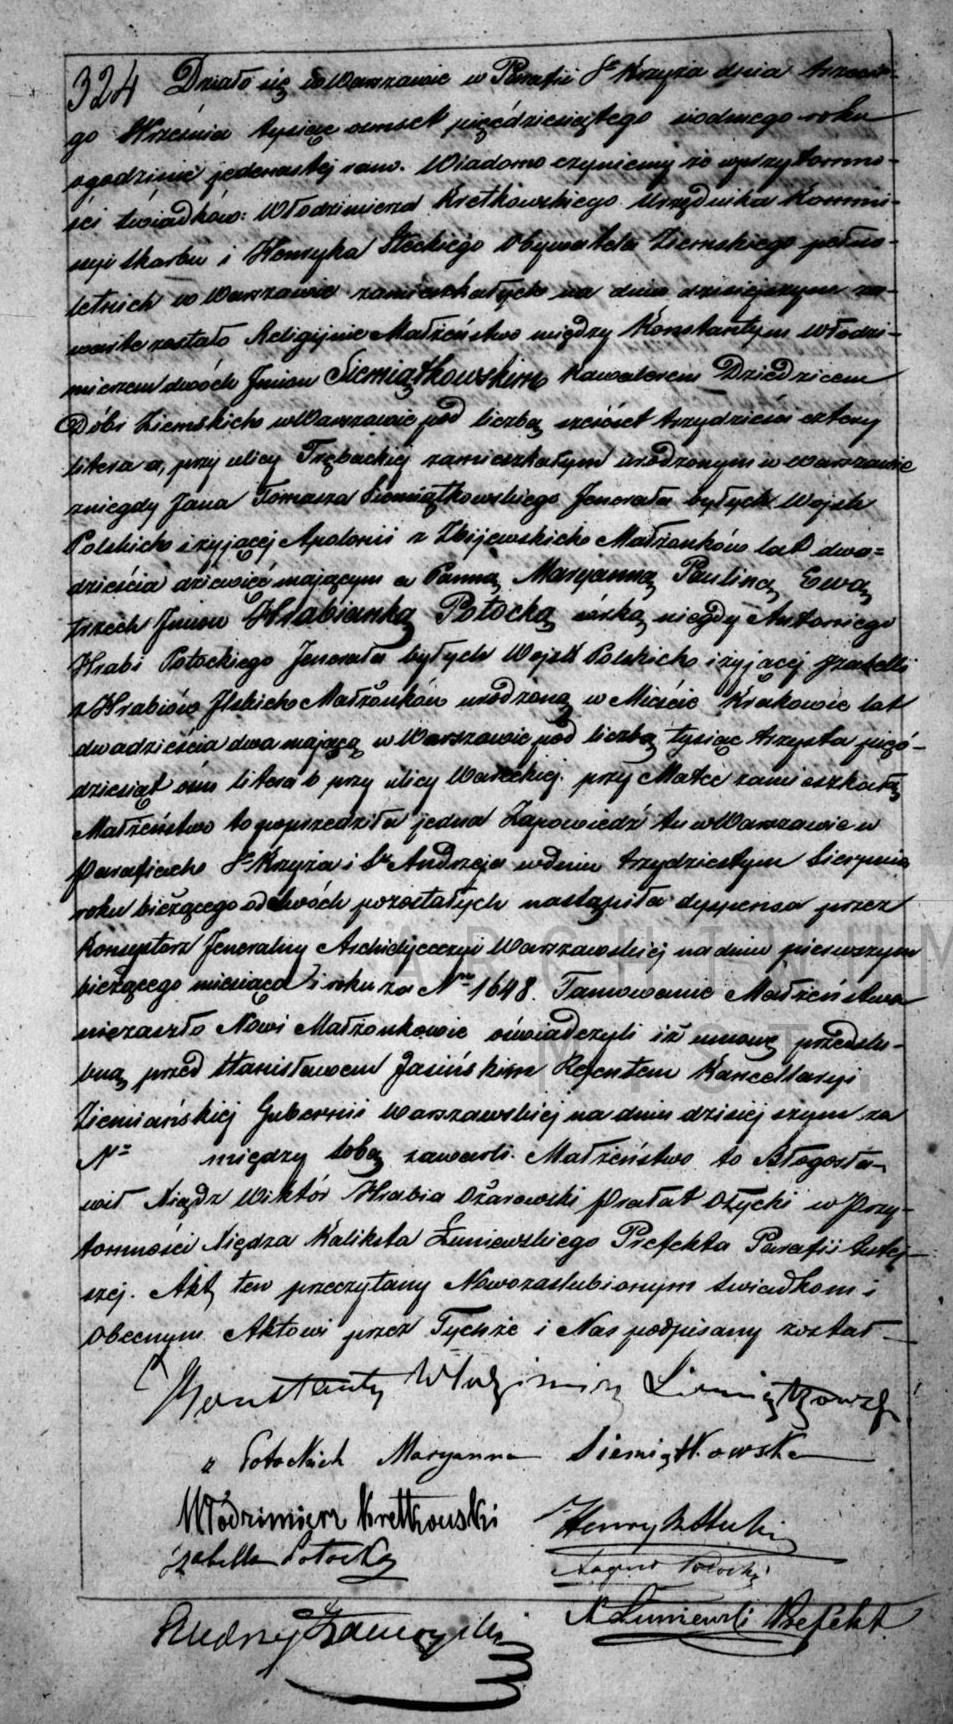 324 Działo się w Warszawie w Parafii Sgo Krzyża dnia trzecie-
go Września tysiąc osmset pięćdziesiątego siodmego roku
o godzinie jedenastej rano. Wiadomo czyniemy że w przytomno-
ści świadków: Włodzimierza Kretkowskiego Urzędnika Kommi-
ssyi Skarbu i Henryka Steckiego Obywatela Ziemskiego pełno-
letnich w Warszawie zamieszkałych na dniu dzisiejszym za-
warte zostało Religijnie Małżeństwo między Konstantym Włodzi-
mierzem dwóch Imion Siemiątkowskim Kawalerem Dziedzicem
Dóbr Ziemskich w Warszawie pod liczbą sześćset trzydzieści cztery
litera a, przy ulicy Trębackiej zamieszkałym urodzonym w Warszawie
z niegdy Jana Tomasza Siemiątkowskiego Jenerała byłych Wojsk
Polskich i żyjącej Apolonii z Zbijewskich Małżonków lat dwa=
dzieścia dziewięć mającym a Panną Maryanną Pauliną Ewą
trzech Imion Hrabianką Potocką córką niegdy Antoniego
Hrabi Potockiego Jenerała byłych Wojsk Polskich i żyjącej Izabelli
z Hrabiów Ilskich Małżonków urodzoną w Mieście Krakowie lat
dwadzieścia dwa mającą w Warszawie pod liczbą tysiąc trzysta pięć-
dziesiąt ośm litera b przy ulicy Wareckiej przy Matce zamieszkałą
Małżeństwo to poprzedziła jedna Zapowiedź tu w Warszawie w
Parafiach Sgo Krzyża i Sgo Andrzeja w dniu trzydziestym Sierpnia
roku bieżącego od dwóch pozostałych nastąpiła dyspensa przez
Konsystorz Jeneralny Archidyecezyi Warszawskiej na dniu pierwszym
bieżącego miesiąca i roku za Nrem 1648. Tamowanie Małżeństwa
niezaszło Nowi Małżonkowie oświadczyli iż umowę przedślu-
bną przed Stanisławem Jasińskim Rejentem Kancellaryi
Ziemiańskiej Gubernii Warszawskiej na dniu dzisiejszym za
No między sobą zawarli. Małżeństwo to Błogosła-
wił Xiądz Wiktór Hrabia Ożarowski Prałat Ołycki w Przy-
tomności Xiędza Kaliksta Łuniewskiego Prefekta Parafii tutej-
szej. Akt ten przeczytany Nowozaślubionym świadkom i
Obecnym Aktowi przez Tychże i Nas podpisany został
Konstanty Włodzimierz Siemiątkowski
z Potockich Maryanna Siemiątkowska
Włodzimierz Kretkowski Henryk Stecki
Izabella Potocka August Potocki
Andrzej Zamoyski K Łuniewski Prefekt
ARCHIWUM